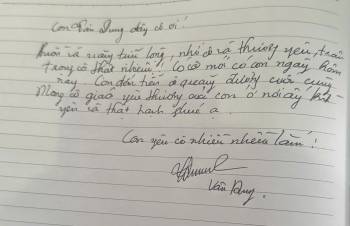 Con Vân Dung đây cô ơi!
Buổi và ngày tuổi lòng, nhớ cô và thương yêu, trân
trọng cô thật nhiều!! Có cô mới có con ngày hôm
nay. Con đến tiễn ở quãng đường cuối cùng
Mong cô giáo yêu thương của con ở nơi ấy bình
yên và thật hạnh phúc ạ.
Con yêu cô nhiều nhiều lắm!
Vân Dung.